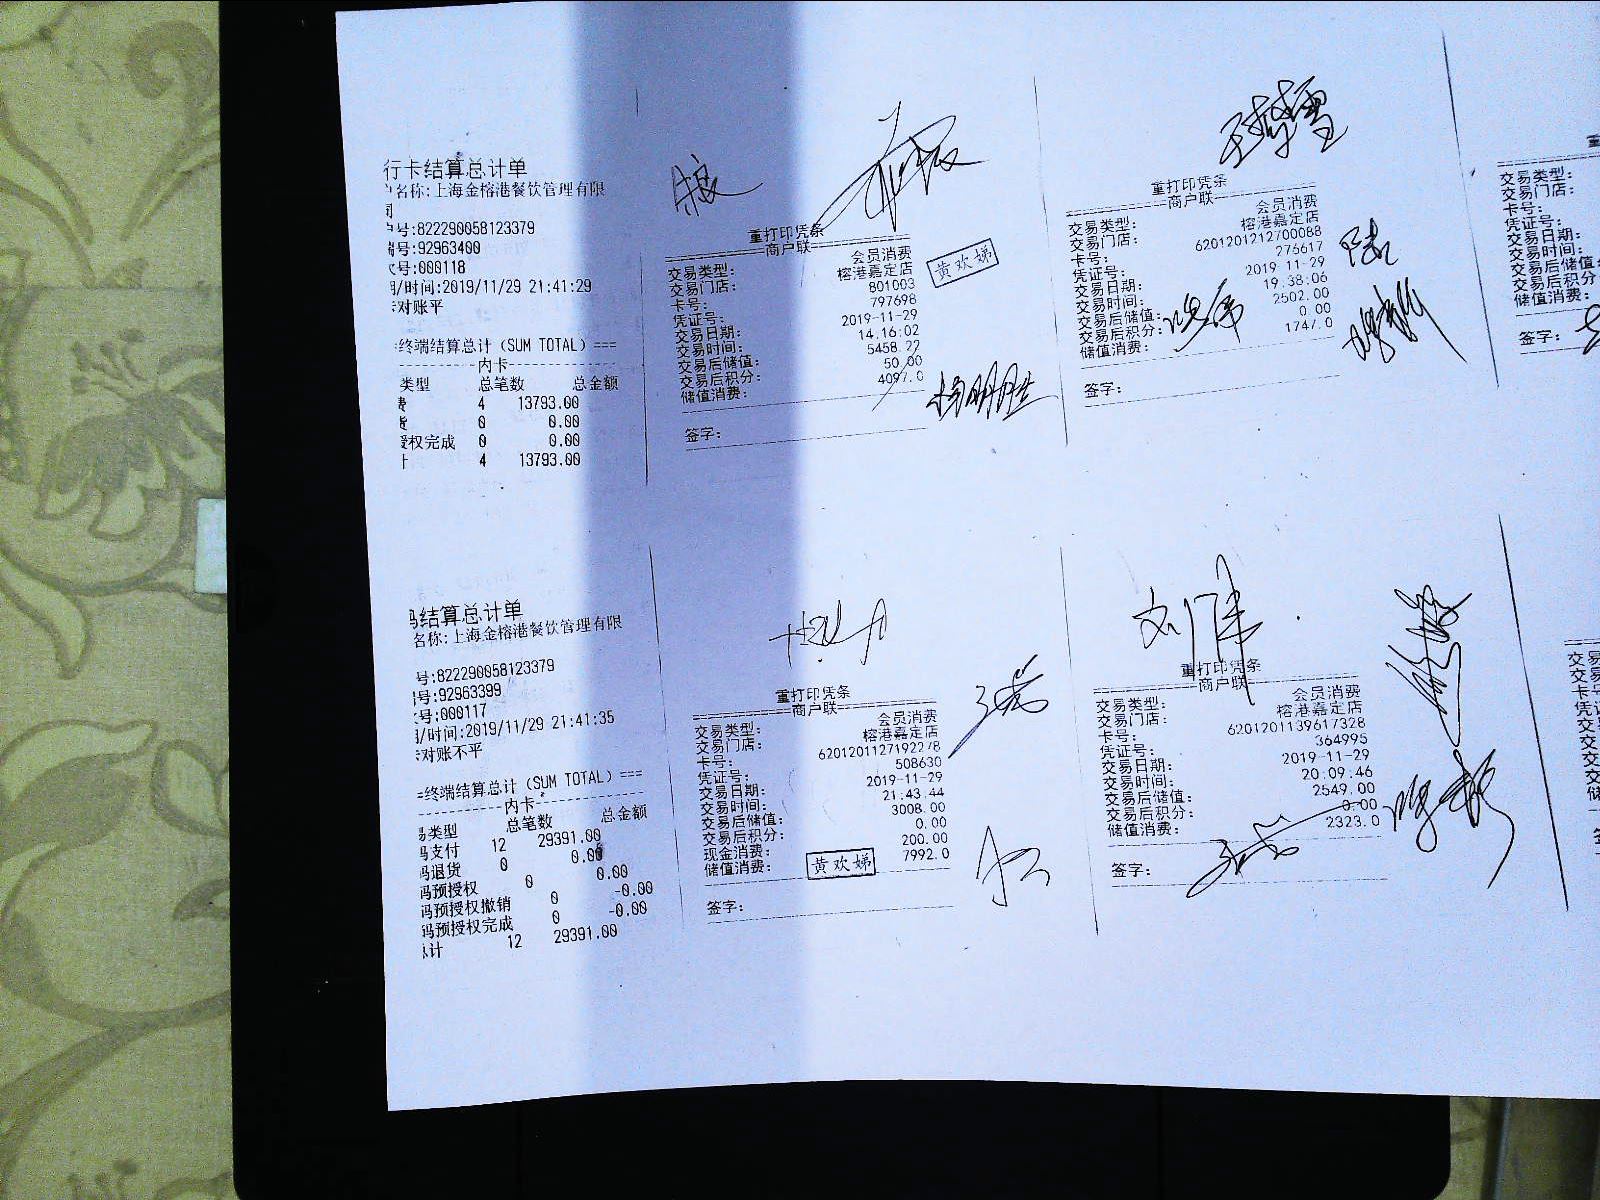 行卡结算总计单
名称:上海金榕港餐饮管理有限
号:822290058123379
号:92963400
号:000118
/时间:2019/11/29 21:41:29
对账平
终端结算总计（SUM TOTAL）===
内卡
类型 总笔数 总金额
费 4 13793.00
货 0 0.00
授权完成 0 0.00
计 4 13793.00
重打印凭条
商户联
交易类型: 会员消费
交易门店: 榕港嘉定店
卡号: 801003
凭证号: 797698
交易日期: 2019-11-29
交易时间: 14:16:02
交易后储值: 5458.22
交易后积分: 50.00
储值消费: 4097.0
签字:
黄欢娣
杨明胜
重打印凭条
商户联
交易类型: 会员消费
交易门店: 榕港嘉定店
卡号: 6201201212700088
凭证号: 276617
交易日期: 2019-11-29
交易时间: 19:38:06
交易后储值: 2502.00
交易后积分: 0.00
储值消费: 1747.0
签字:
交易类型:
交易门店:
卡号:
凭证号:
交易日期:
交易时间:
交易后储值:
交易后积分
储值消费:
签字:
码结算总计单
名称:上海金榕港餐饮管理有限
号:822290058123379
号:92963399
号:000117
/时间:2019/11/29 21:41:35
对账不平
=终端结算总计（SUM TOTAL）===
内卡
易类型 总笔数 总金额
码支付 12 29391.00
码退货 0 0.00
码预授权 0 0.00
码预授权撤销 0 -0.00
码预授权完成 0 -0.00
总计 12 29391.00
重打印凭条
商户联
交易类型: 会员消费
交易门店: 榕港嘉定店
卡号: 6201201127192278
凭证号: 508630
交易日期: 2019-11-29
交易时间: 21:43:44
交易后储值: 3008.00
交易后积分: 0.00
现金消费: 200.00
储值消费: 7992.0
黄欢娣
签字:
刘伟
重打印凭条
商户联
交易类型: 会员消费
交易门店: 榕港嘉定店
卡号: 6201201139617328
凭证号: 364995
交易日期: 2019-11-29
交易时间: 20:09:46
交易后储值: 2549.00
交易后积分: 0.00
储值消费: 2323.0
签字: